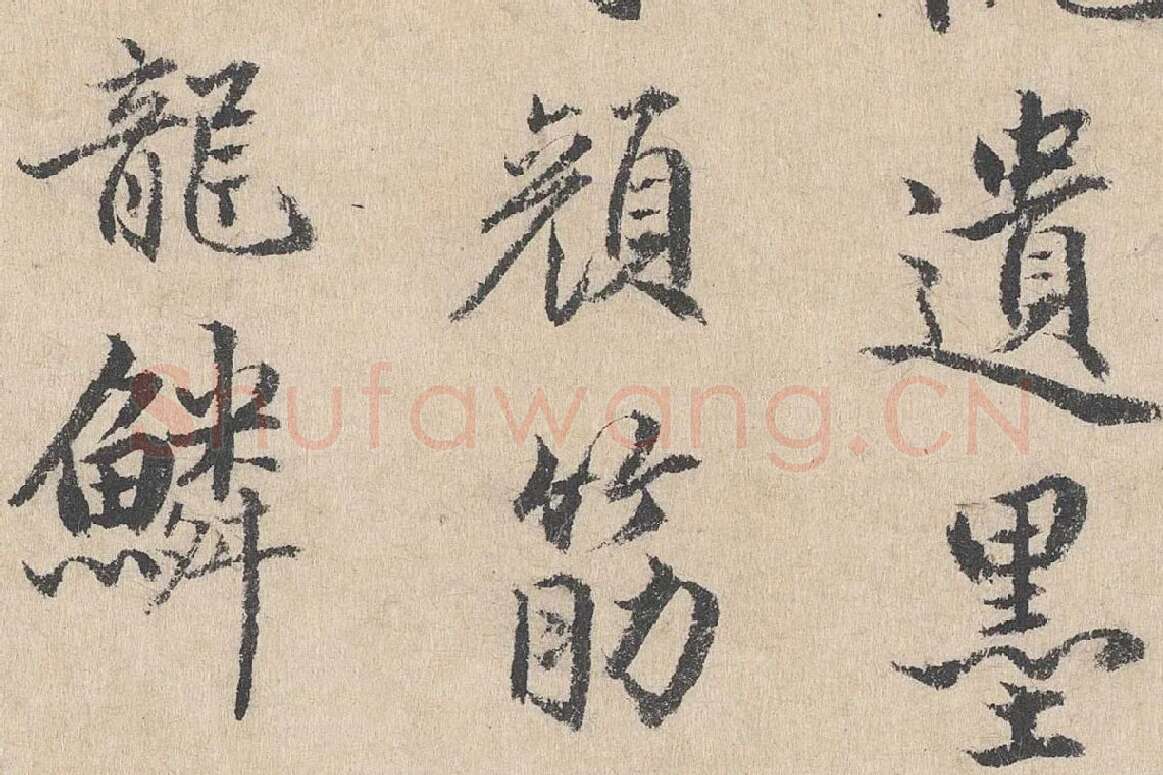 遺墨
顔筋
龍鱗
Shufawang.CN